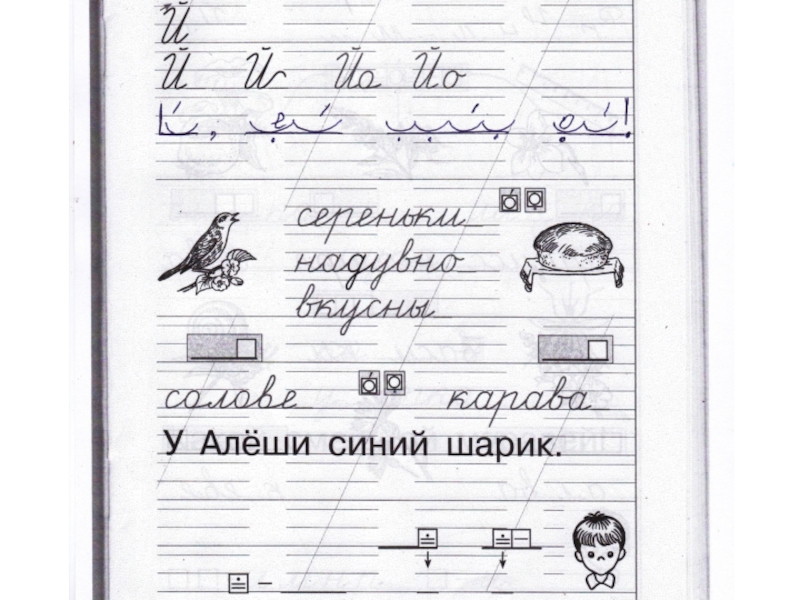 Й
Й Й Йо Йо
сереньки
надувно
вкусны
солове карава
У Алёши синий шарик.